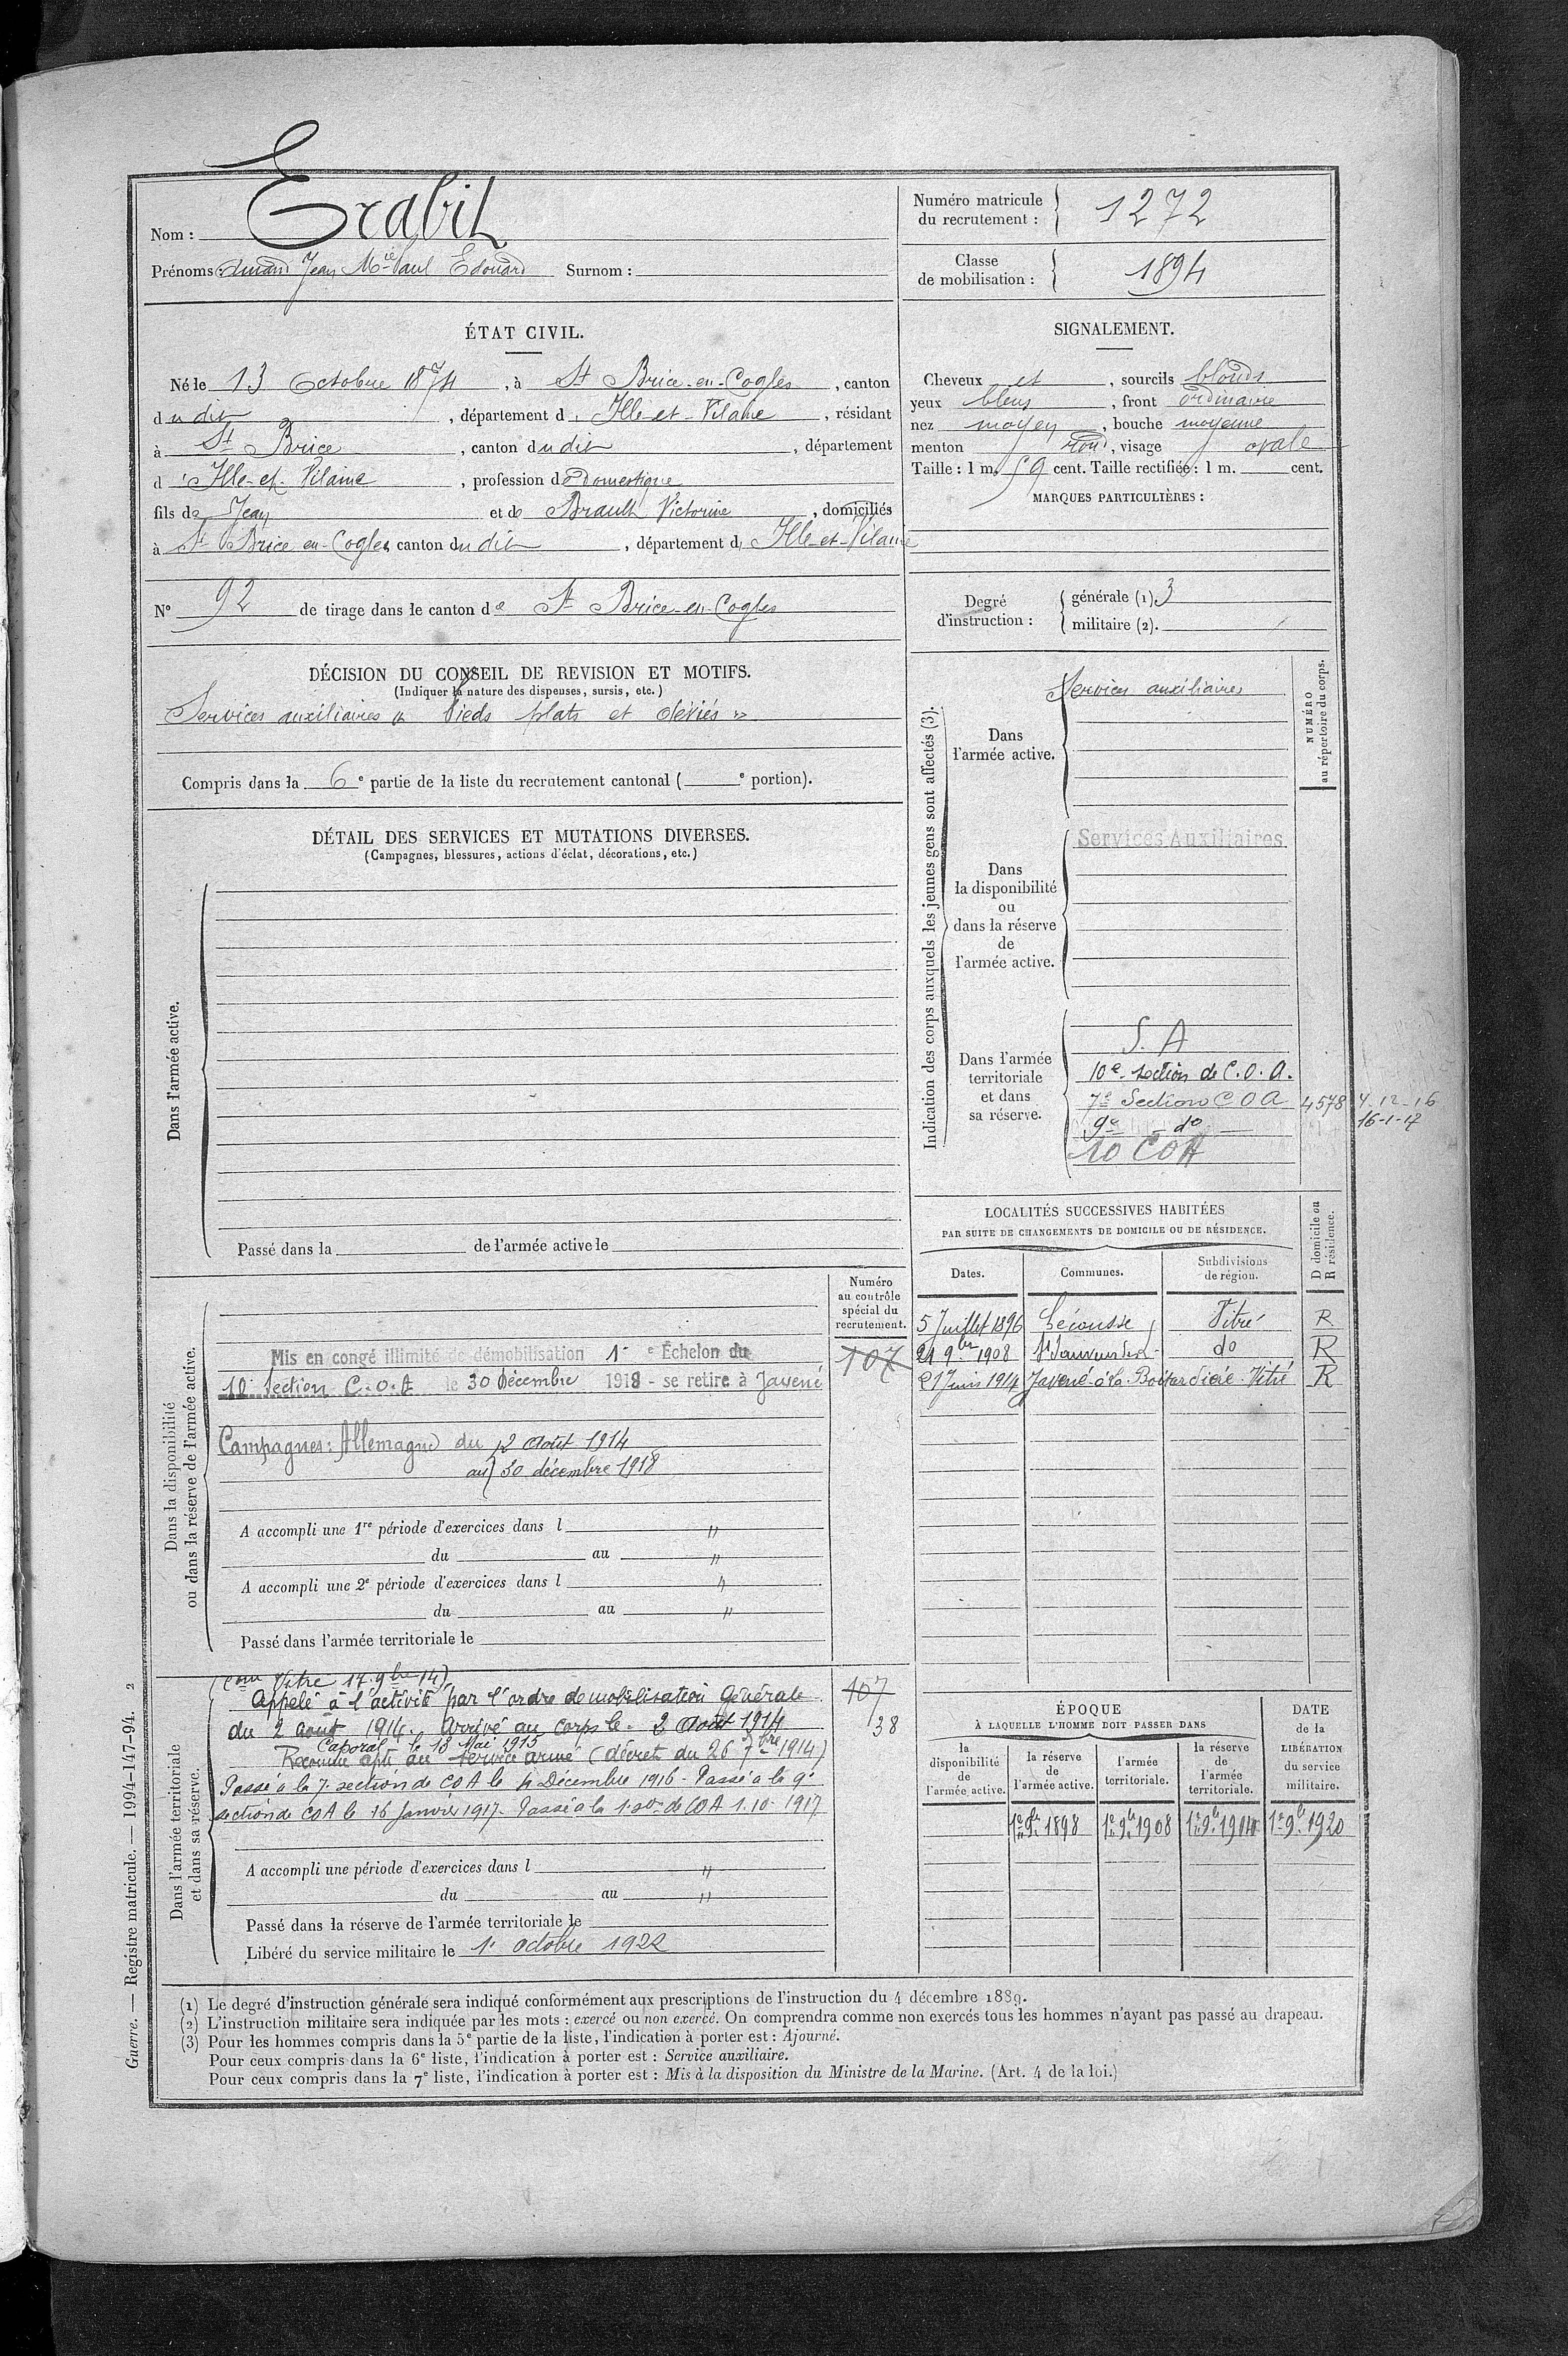 Nom : Erabit
Prénoms : Jean Mie Paul Edouard Surnom :
Numéro matricule
du recrutement :
1272
Classe
de mobilisation :
1894
ÉTAT CIVIL.
Né le 13 Octobre 1874, à St Brice-en-Cogles, canton
dudit, département d'Ille-et-Vilaine, résidant
à St Brice, canton dudit, département
d'Ille-et-Vilaine, profession de domestique
fils de Jean et de Brault Victorine, domiciliés
à St Brice-en-Cogles canton dudit, département d'Ille-et-Vilaine
N° 92 de tirage dans le canton de St Brice-en-Cogles
SIGNALEMENT.
Cheveux et, sourcils blonds
yeux bleus, front ordinaire
nez moyen, bouche moyenne
menton rond, visage ovale
Taille : 1 m. 59 cent. Taille rectifiée : 1 m. cent.
MARQUES PARTICULIÈRES :
Degré
d'instruction :
générale (1). 3
militaire (2).
DÉCISION DU CONSEIL DE REVISION ET MOTIFS.
(Indiquer la nature des dispenses, sursis, etc.)
Services auxiliaires « Pieds plats et déviés »
Compris dans la 6e partie de la liste du recrutement cantonal ( e portion).
DÉTAIL DES SERVICES ET MUTATIONS DIVERSES.
(Campagnes, blessures, actions d'éclat, décorations, etc.)
Dans l'armée active.
Passé dans la de l'armée active le
Indication des corps auxquels les jeunes gens sont affectés (3).
NUMÉRO
au répertoire du corps.
Dans
l'armée active.
Services auxiliaires
Dans
la disponibilité
ou
dans la réserve
de
l'armée active.
Services Auxiliaires
Dans l'armée
territoriale
et dans
sa réserve.
S. A
10e section de C.O.A.
7e Section C O A 4578 4.12-16
9e — do — 16-1-17
10 COA
LOCALITÉS SUCCESSIVES HABITÉES
PAR SUITE DE CHANGEMENTS DE DOMICILE OU DE RÉSIDENCE.
D domicile ou
R résidence.
Dates. Communes. Subdivisions
de région.
5 Juillet 1896 Lécousse Vitré R
21 9bre 1908 do R
21 Juin 1914 Javené Vitré R
Dans la disponibilité
ou dans la réserve de l'armée active.
Numéro
au contrôle
spécial du
recrutement.
107
Mis en congé illimité de démobilisation 1er Échelon du
10e Section C.O.A le 30 Décembre 1918 - se retire à Javené
Campagnes : Allemagne du 2 Août 1914
au 30 décembre 1918
A accompli une 1re période d'exercices dans l "
du au "
A accompli une 2e période d'exercices dans l "
du au "
Passé dans l'armée territoriale le
Dans l'armée territoriale
et dans sa réserve.
(Con Vitré 17.9bre 14)
Appelé à l'activité par l'ordre de mobilisation Générale
du 2 août 1914. Arrivé au corps le 2 Août 1914
Caporal le 18 Mai 1915
Reconnu apte au service armé (décret du 26 7bre 1914)
Passé à la 7e section de COA le 4 Décembre 1916 - Passé à la 9e
section de COA le 16 Janvier 1917. Passé à la de COA 1.10-1917
107
38
A accompli une période d'exercices dans l "
du au "
Passé dans la réserve de l'armée territoriale le
Libéré du service militaire le 1er octobre 1922
ÉPOQUE
À LAQUELLE L'HOMME DOIT PASSER DANS
DATE
de la
LIBÉRATION
du service
militaire.
la
disponibilité
de
l'armée active.
la réserve
de
l'armée active.
l'armée
territoriale.
la réserve
de
l'armée
territoriale.
1er 9bre 1898 1er 9bre 1908 1er 9bre 1914 1er 9bre 1920
(1) Le degré d'instruction générale sera indiqué conformément aux prescriptions de l'instruction du 4 décembre 1889.
(2) L'instruction militaire sera indiquée par les mots : exercé ou non exercé. On comprendra comme non exercés tous les hommes n'ayant pas passé au drapeau.
(3) Pour les hommes compris dans la 5e partie de la liste, l'indication à porter est : Ajourné.
Pour ceux compris dans la 6e liste, l'indication à porter est : Service auxiliaire.
Pour ceux compris dans la 7e liste, l'indication à porter est : Mis à la disposition du Ministre de la Marine. (Art. 4 de la loi.)
Guerre. — Registre matricule. — 1994-147-94. 2